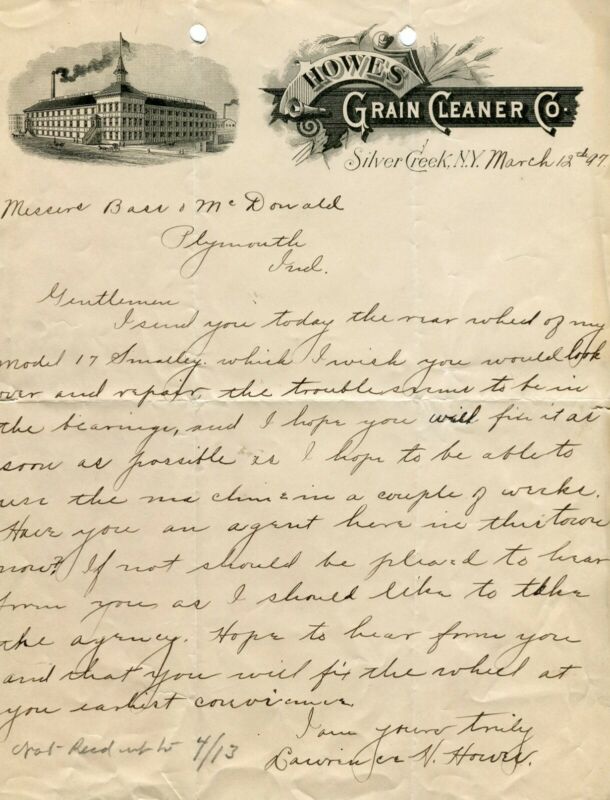 HOWE'S
GRAIN CLEANER CO.
Silver Creek, N.Y. March 12th 97
Messers Bass & McDonald
Plymouth
Ind.
Gentlemen
I send you today the rear wheel of my
Model 17 Smalley. which I wish you would look
over and repair, the trouble seems to be in
the bearings, and I hope you will fix it as
soon as possible as I hope to be able to
use the machine in a couple of weeks.
Have you an agent here in this town
now? If not should be pleased to hear
from you as I should like to take
the agency. Hope to hear from you
and that you will fix the wheel at
you earliest convience
I am yours truly
Lawrence N. Howes.
Not Recd up to 4/13